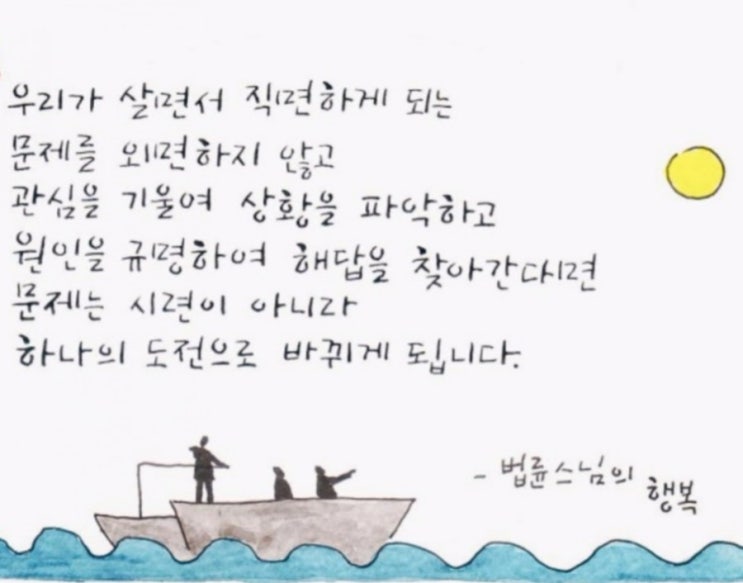 우리가 살면서 직면하게 되는
문제를 외면하지 않고
관심을 기울여 상황을 파악하고
원인을 규명하여 해답을 찾아간다면
문제는 시련이 아니라
하나의 도전으로 바뀌게 됩니다.
- 법륜스님의 행복